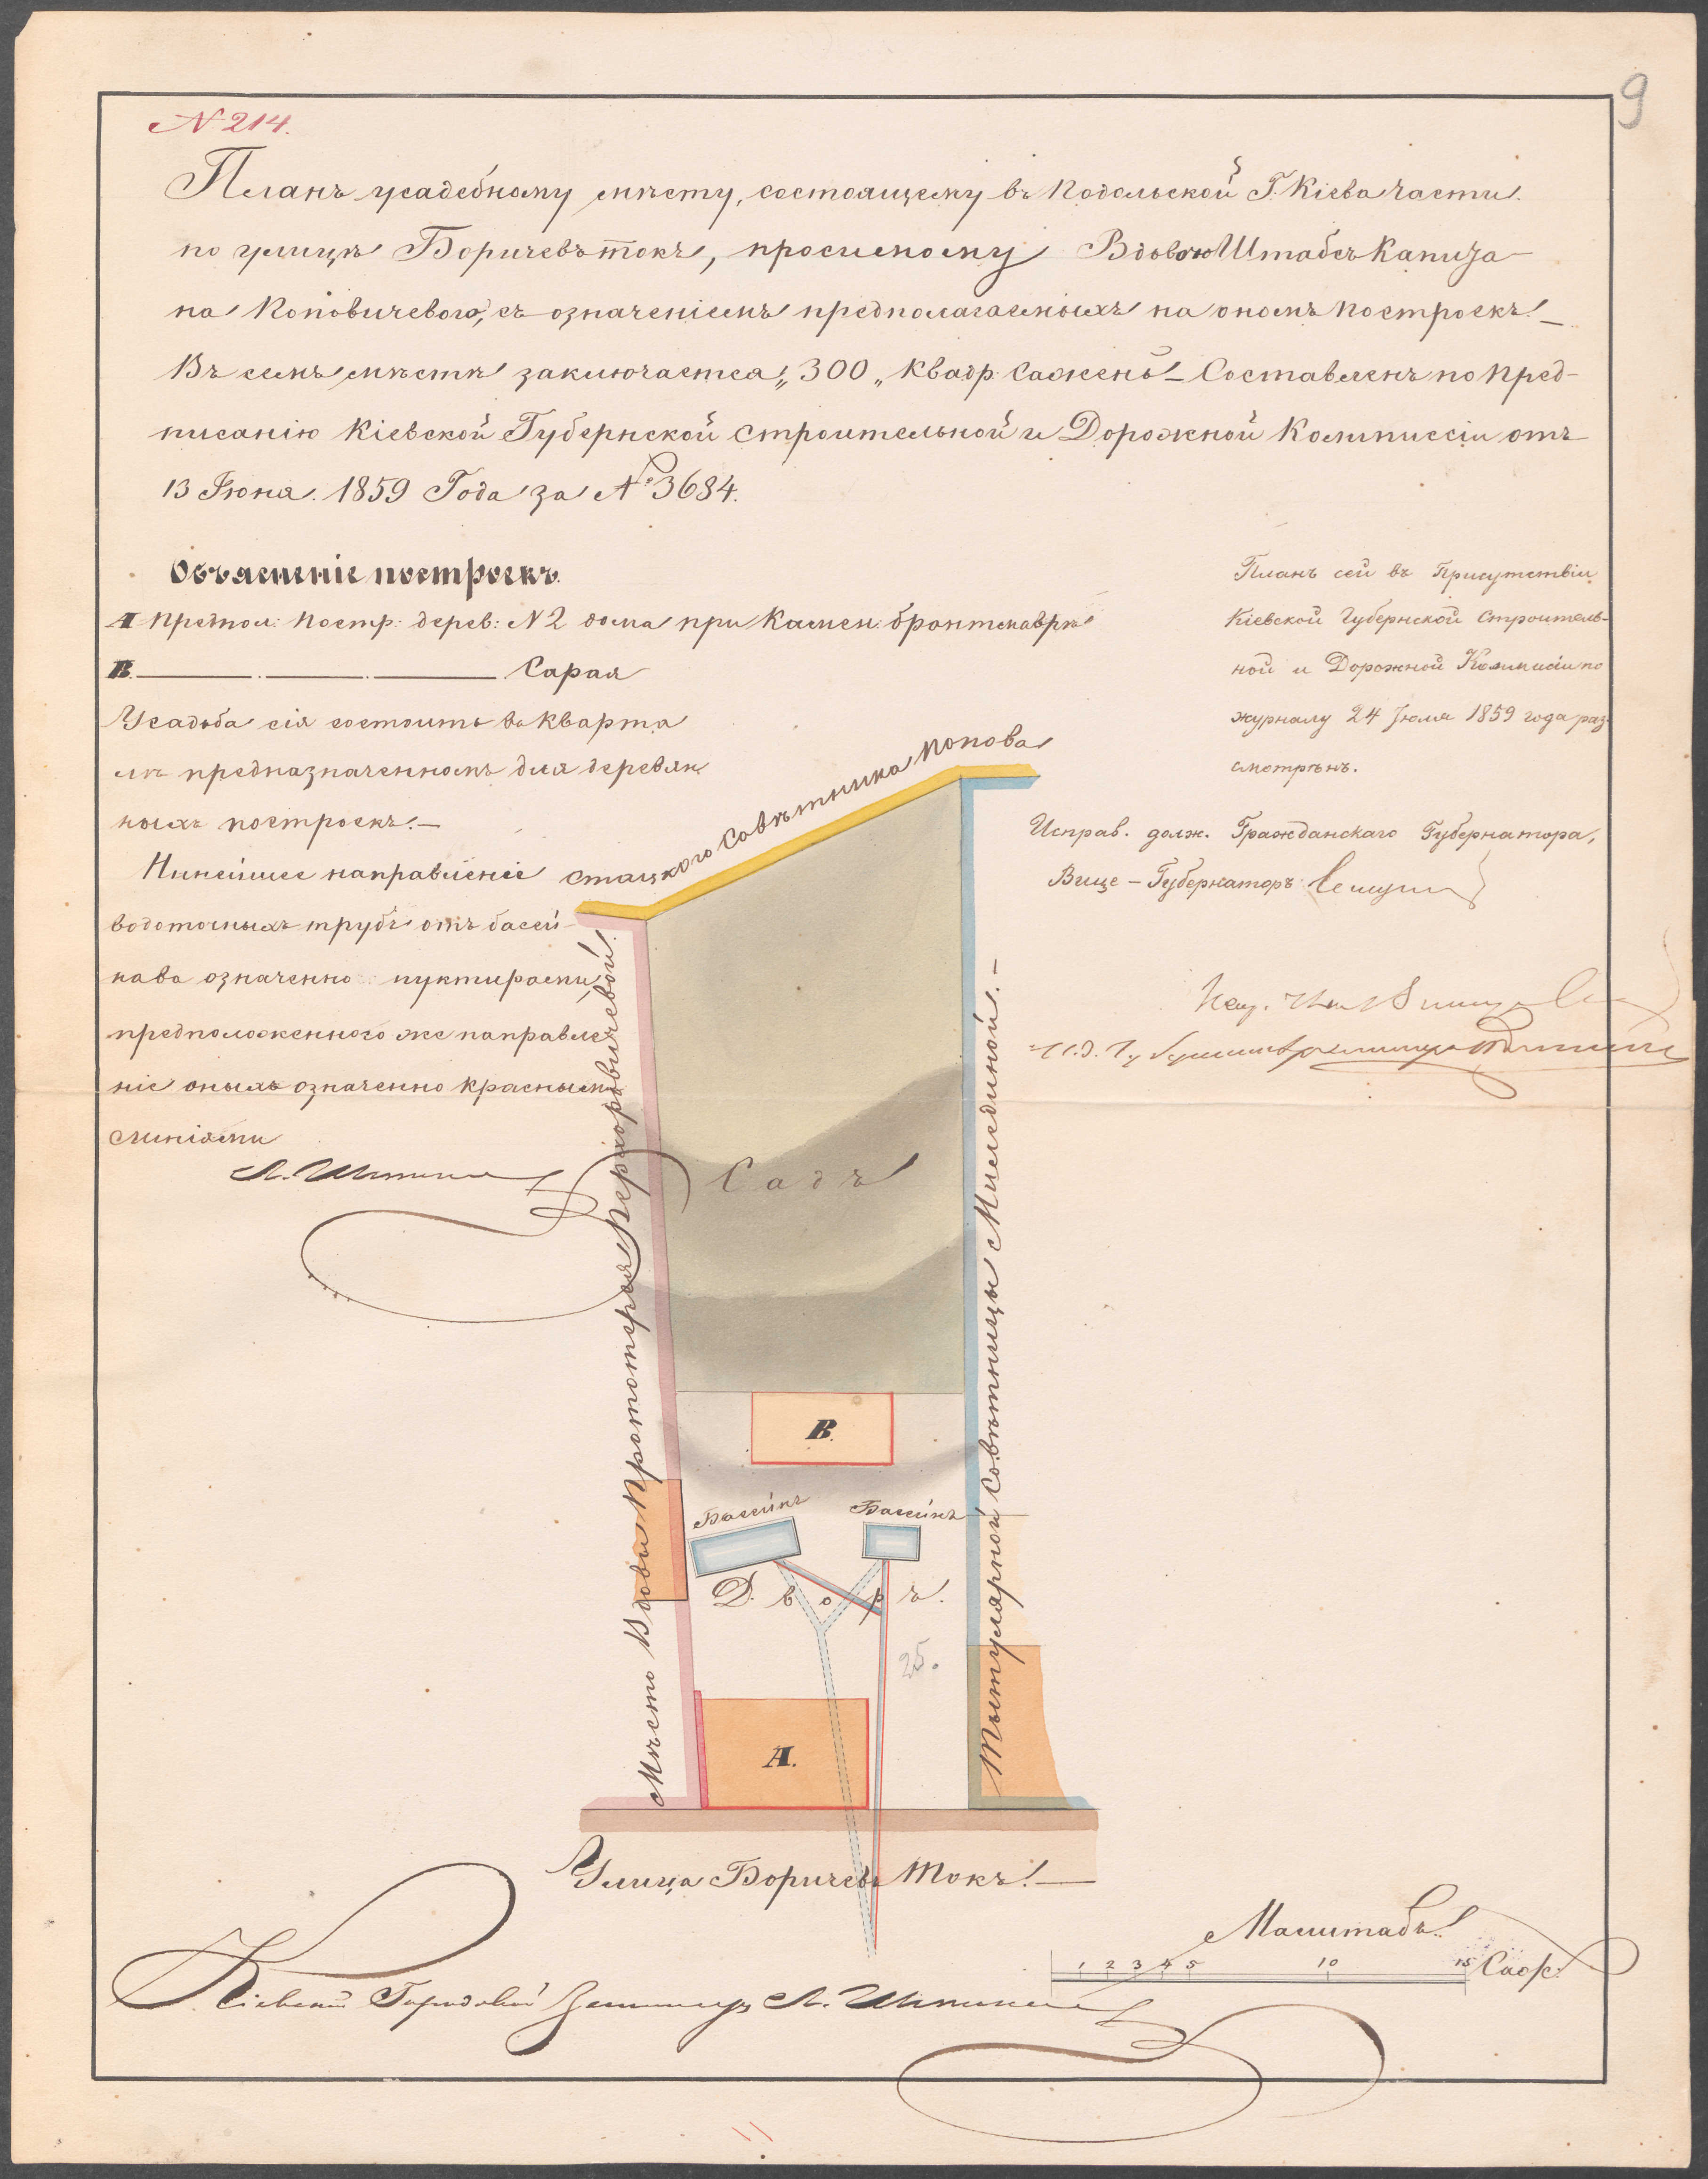 9
N 214.
Планъ усадебному мѣсту, состоящему въ Подольской Г. Кіева части
по улицѣ Боричевъ токъ, просимому Вдовою Штабсъ Капита-
на Коповичевого, съ означеніемъ предполагаемыхъ на ономъ построекъ. —
Въ семъ мѣстѣ заключается „ 300 „ квадр. Сажень — Составленъ по пред-
писанію Кіевской Губернской Строительной и Дорожной Коммиссіи отъ
13 Іюня. 1859 Года за № 3684.
Объясненіе построекъ.
А предпол: постр: дерев: N 2 дома при камен. брантмаврѣ
В. Сарая
Усадьба сія состоитъ въ кварта
лѣ предназначенномъ для деревян
ныхъ построекъ. —
Нинейшее направленіе
водоточныхъ трубъ отъ басей-
новъ означенно пунктирами,
предположенного же направле
ніе оныхъ означенно красными
линіями
Планъ сей въ Присутствіи
Кіевской Губернской Строитель-
ной и Дорожной Коммисіи по
журналу 24 Іюля 1859 года раз-
смотрѣнъ.
Исправ. долж. Гражданскаго Губернатора,
Вице-Губернаторъ
Статскаго Совѣтника Попова
Мѣсто Вдовы Протоіерея
Тытулярной Совѣтницы
Садъ
В.
Бассейнъ
Бассейнъ
Дворъ.
25.
А.
Улица Боричевъ Токъ. —
Масштабъ
1 2 3 4 5 10 15 Саж:
Кіевскій Городовой Землемеръ